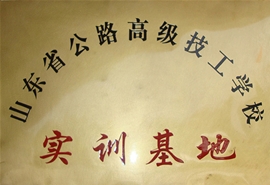 山东省公路高级技工学校
实训基地